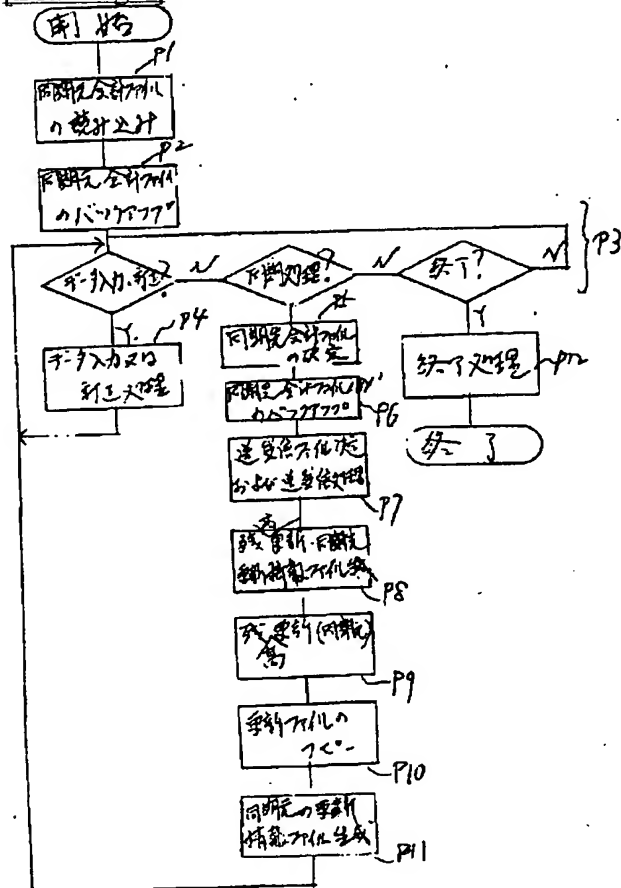 開始
P1
同期元会計ファイル
の読み込み
P2
同期元会計ファイル
のバックアップ
P3
データ入力、訂正?
N
同期処理?
N
終了?
N
Y
P4
データ入力又は
訂正処理
P5
同期先会計ファイル
の決定
同期先会計ファイル
のバックアップ
P6
送受信ファイル決定
および送受信処理
P7
P8
残高更新(同期元)
P9
更新ファイルの
コピー
P10
同期元の更新
情報ファイル生成
P11
Y
終了処理
P12
終了